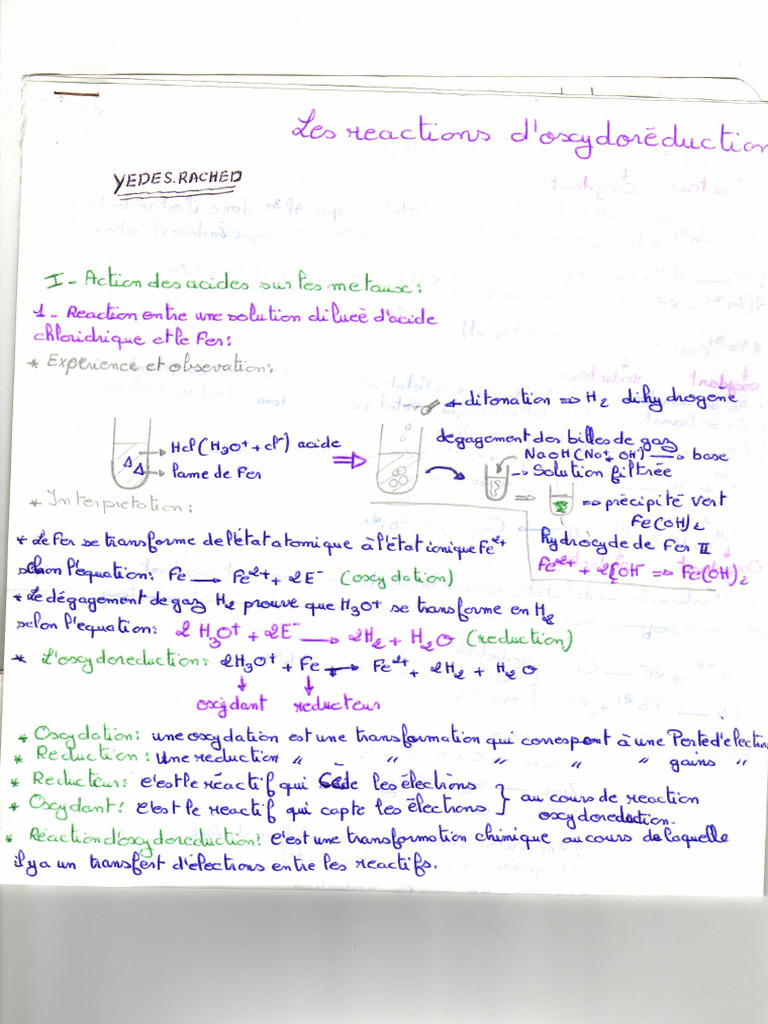 Les reactions d'oxydoréduction
YEDES.RACHED
I - Action des acides sur les metaux :
1 - Reaction entre une solution diluée d'acide
chloridrique et le Fer :
* Experience et observation :
ditonation => H2 dihydrogène
HCl (H3O+ + Cl-) acide
lame de Fer
dégagement des billes de gaz
NaOH (Na+, OH-) → base
Solution filtrée
=> précipité vert
Fe(OH)2
hydrocyde de Fer II
Fe2+ + 2OH- => Fe(OH)2
* Interpretation :
* Le Fer se transforme de l'état atomique à l'état ionique Fe2+
selon l'equation : Fe → Fe2+ + 2E- (oxydation)
* Le dégagement de gaz H2 prouve que H3O+ se transforme en H2
selon l'equation : 2H3O+ + 2E- → 2H2 + H2O (reduction)
* L'oxydoreduction : 2H3O+ + Fe → Fe2+ + 2H2 + H2O
oxydant reducteur
* Oxydation : une oxydation est une transformation qui correspont à une Perte d'electro
* Reduction : Une reduction " " " " " gains "
* Reducteur : c'est le réactif qui Cède les élections
* Oxydant : c'est le reactif qui capte les élections
} au cours de reaction
oxydoreduction.
* Réaction d'oxydoreduction : c'est une transformation chimique au cours de laquelle
il y a un transfert d'élections entre les reactifs.